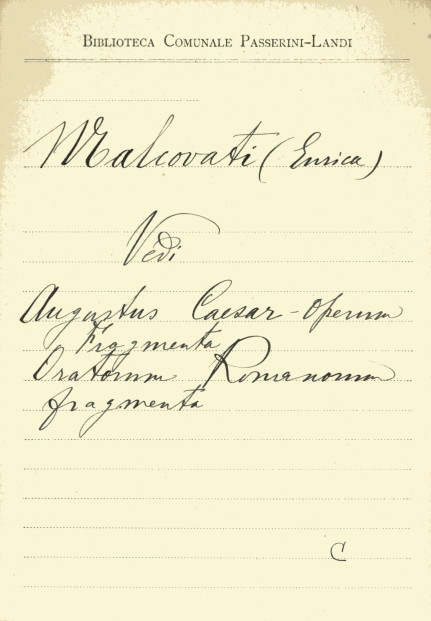 BIBLIOTECA COMUNALE PASSERINI-LANDI
Malcovati (Enrica)
Vedi
Augustus Caesar - Operum
Fragmenta
Oratorum Romanorum
fragmenta
C